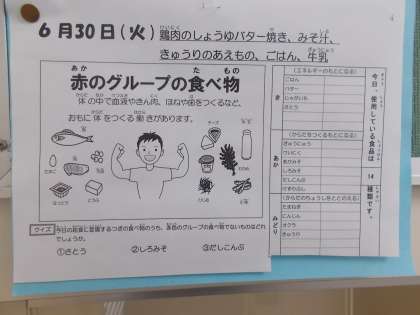 6月30日(火)鶏肉のしょうゆバター焼き、みそ汁、
きゅうりのあえもの、ごはん、牛乳
赤のグループの食べ物
あか た もの
体の中で血液やきん肉、ほねや歯をつくるなど、
おもに体をつくる働きがあります。
クイズ 今日の給食に登場するつぎの食べ物のうち、赤のグループの食べ物でないものはどれ
でしょうか。
①さとう ②しろみそ ③だしこんぶ
今日、使用している食品は 14 種類です。
き
(エネルギーのもとになる)
ごはん
バター
じゃがいも
さとう
あか
(からだをつくるもとになる)
ぎゅうにゅう
けいにく
あかみそ
しろみそ
だしこんぶ
けずりぶし
みどり
(からだのちょうしをととのえる)
たまねぎ
にんじん
オクラ
きゅうり